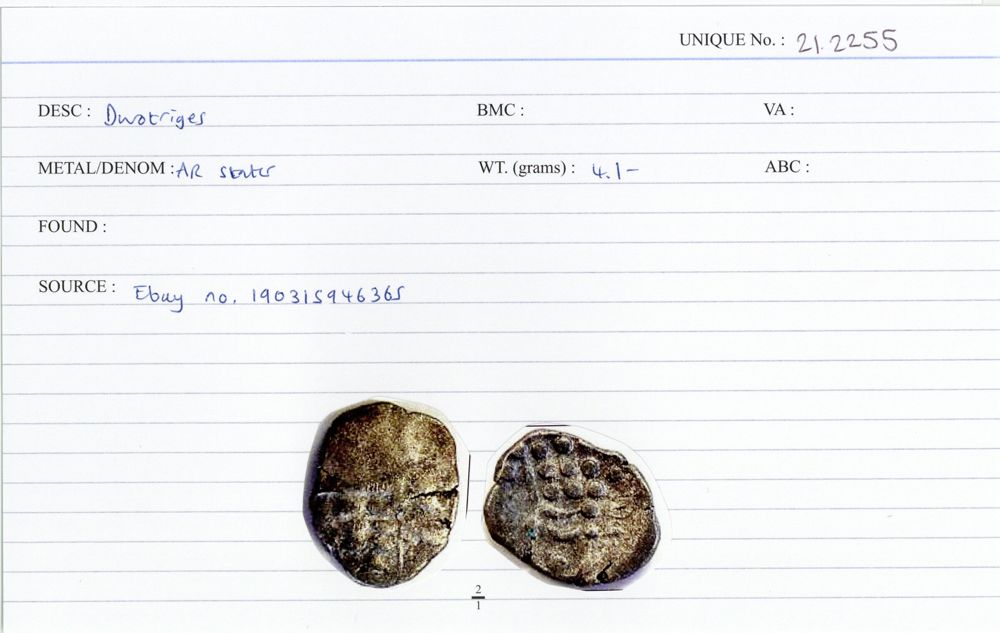 UNIQUE No. : 21.2255
DESC : Durotriges BMC : VA :
METAL/DENOM : AR stater WT. (grams) : 4.1-
ABC :
FOUND :
SOURCE : Ebay no. 190315946365
2
1